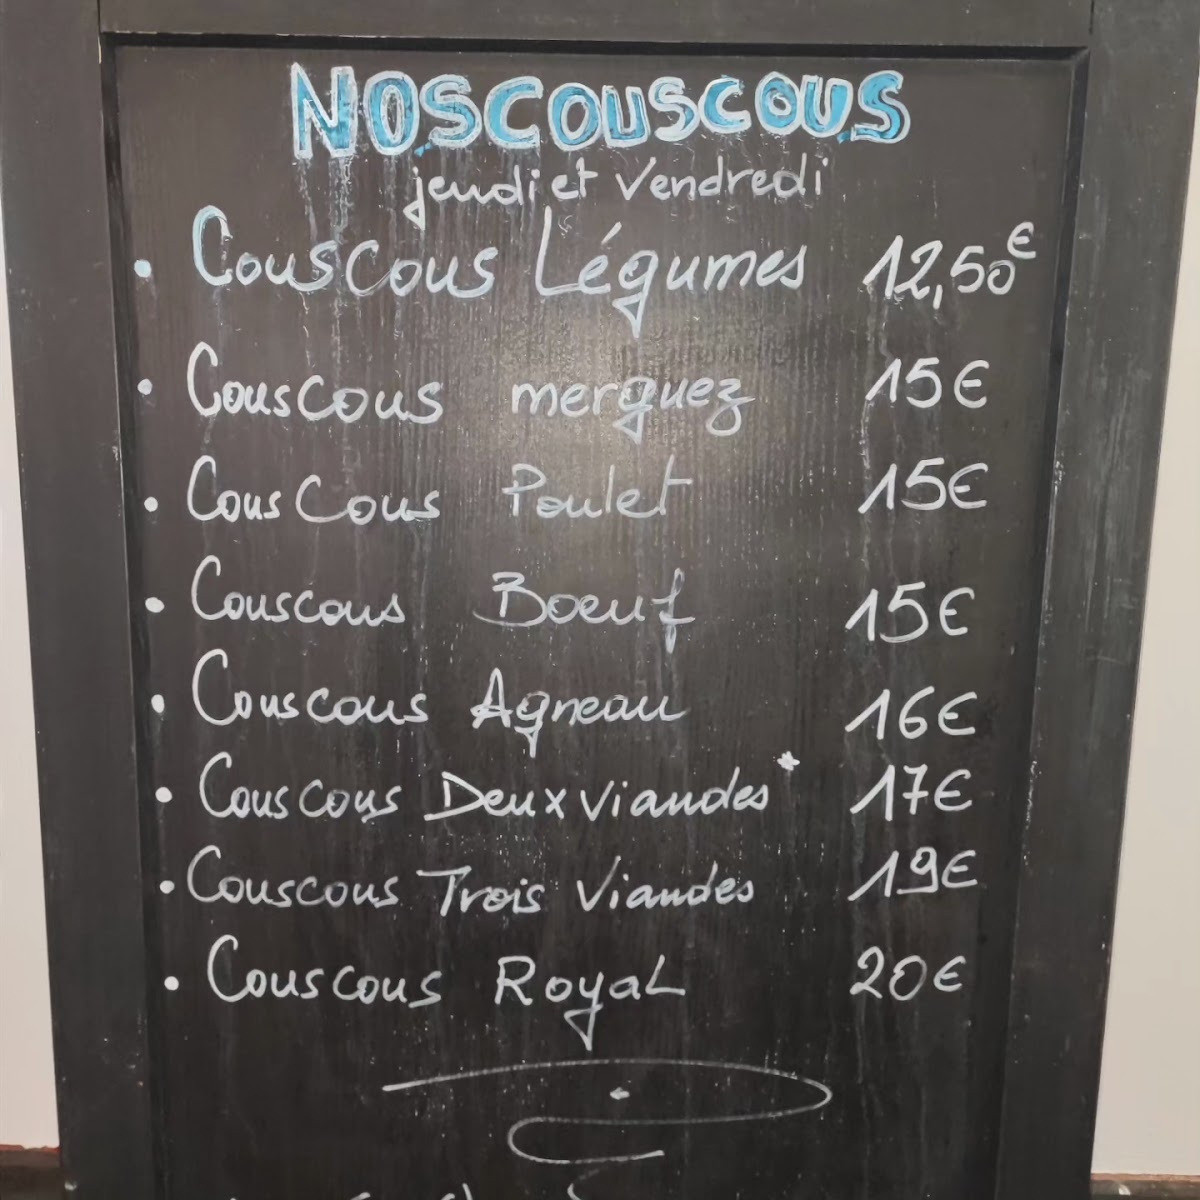 NOS COUSCOUS
jeudi et Vendredi
• Couscous Légumes 12,50€
• Couscous merguez 15€
• Couscous Poulet 15€
• Couscous Boeuf 15€
• Couscous Agneau 16€
• Couscous Deux viandes* 17€
• Couscous Trois Viandes 19€
• Couscous Royal 20€